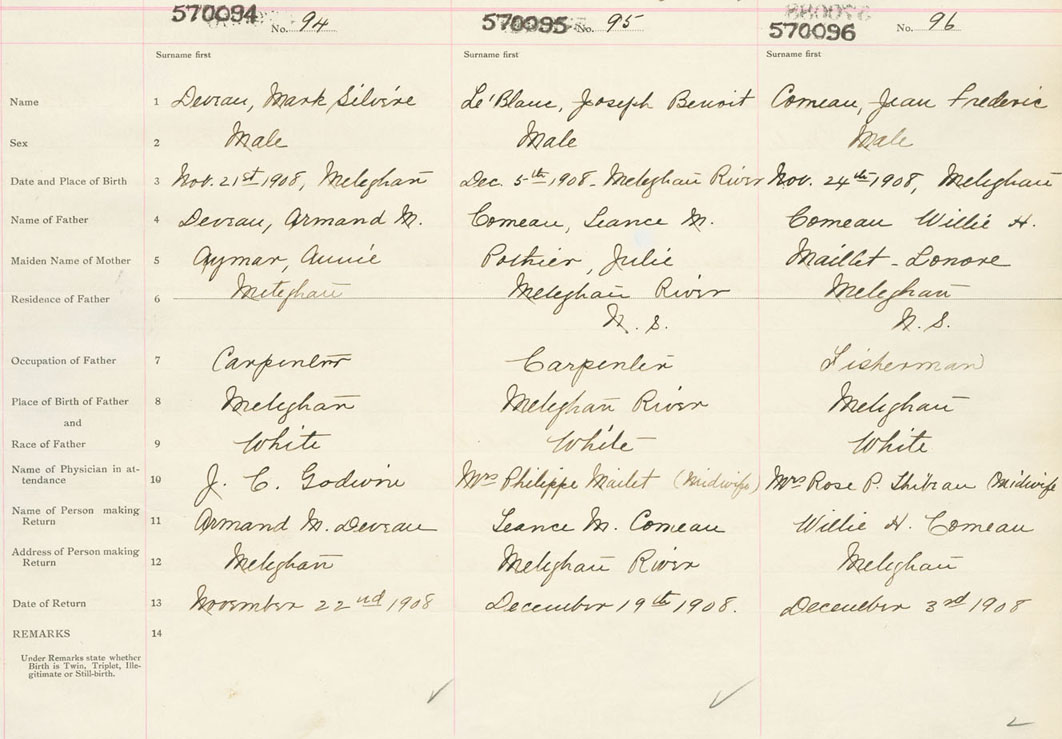 570094 No. 94 570095 No. 95 570096 No. 96
Surname first Surname first Surname first
Name 1 Deveau, Mark Silvire Le'Blanc, Joseph Benoit Comeau, Jean Frederic
Sex 2 Male Male Male
Date and Place of Birth 3 Nov. 21st 1908, Meteghan Dec. 5th 1908 - Meteghan River Nov. 24th 1908, Meteghan
Name of Father 4 Deveau, Armand M. Comeau, Leance M. Comeau Willie H.
Maiden Name of Mother 5 Aymar, Annie Pothier, Julie Maillet - Lonore
Residence of Father 6 Meteghan Meteghan River Meteghan
N. S. N. S.
Occupation of Father 7 Carpenter Carpenter Fisherman
Place of Birth of Father 8 Meteghan Meteghan River Meteghan
and
Race of Father 9 White White White
Name of Physician in at-
tendance 10 J. C. Godwin Mrs Philippe Mailet (Midwife) Mrs Rose P. Thibeau (Midwife
Name of Person making
Return 11 Armand M. Deveau Leance M. Comeau Willie H. Comeau
Address of Person making
Return 12 Meteghan Meteghan River Meteghan
Date of Return 13 November 22nd 1908 December 19th 1908. December 3rd 1908
REMARKS 14
Under Remarks state whether
Birth is Twin, Triplet, Ille-
gitimate or Still-birth.